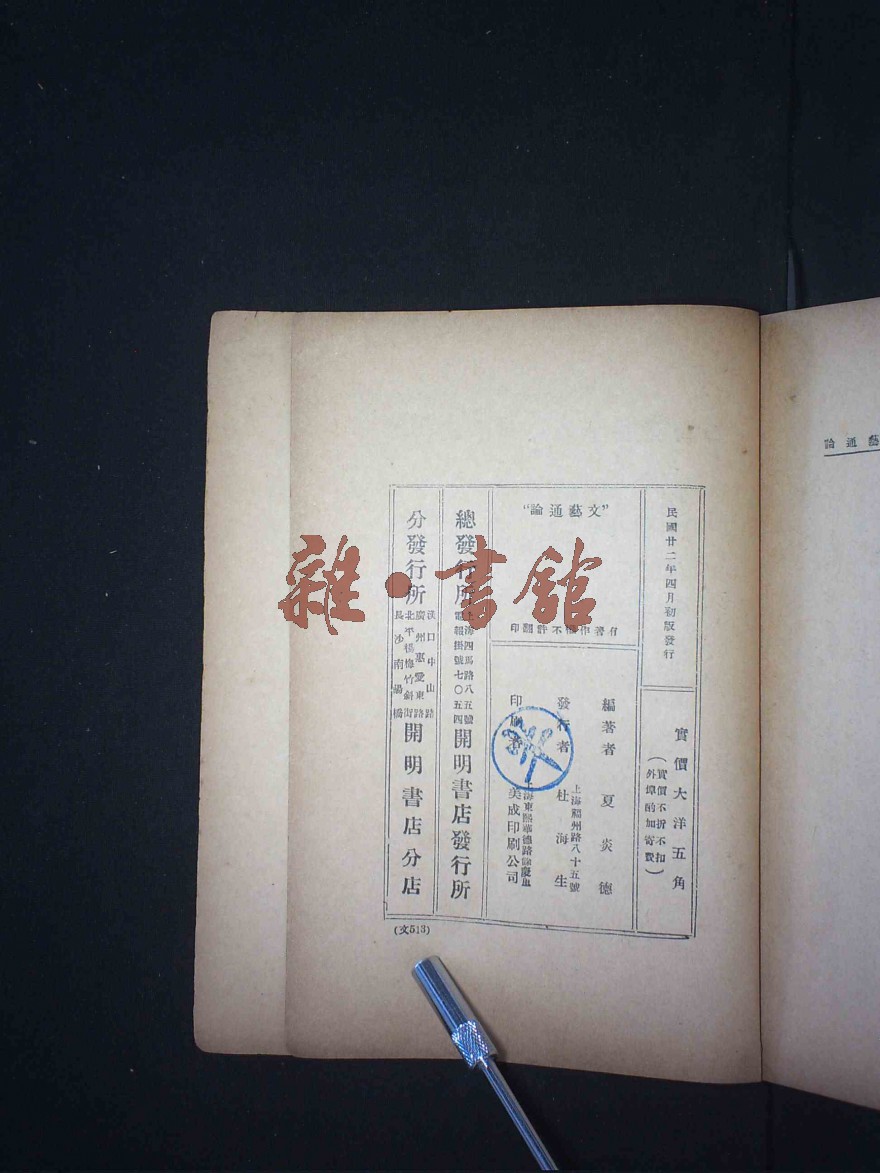 民國廿二年四月初版發行
實價大洋五角
（實價不折不扣
外埠酌加寄費）
“文藝通論”
有著作權不許翻印
編著者 夏炎德
發行者 上海福州路八十五號 杜海生
印刷者 上海東熙華德路 美成印刷公司
總發行所 上海四馬路八五號 電報掛號七〇五四 開明書店發行所
分發行所 漢口中山路
廣州惠愛東路
北平楊梅竹斜街
長沙南陽橋
開明書店分店
（文513）
論通藝
雜·書館